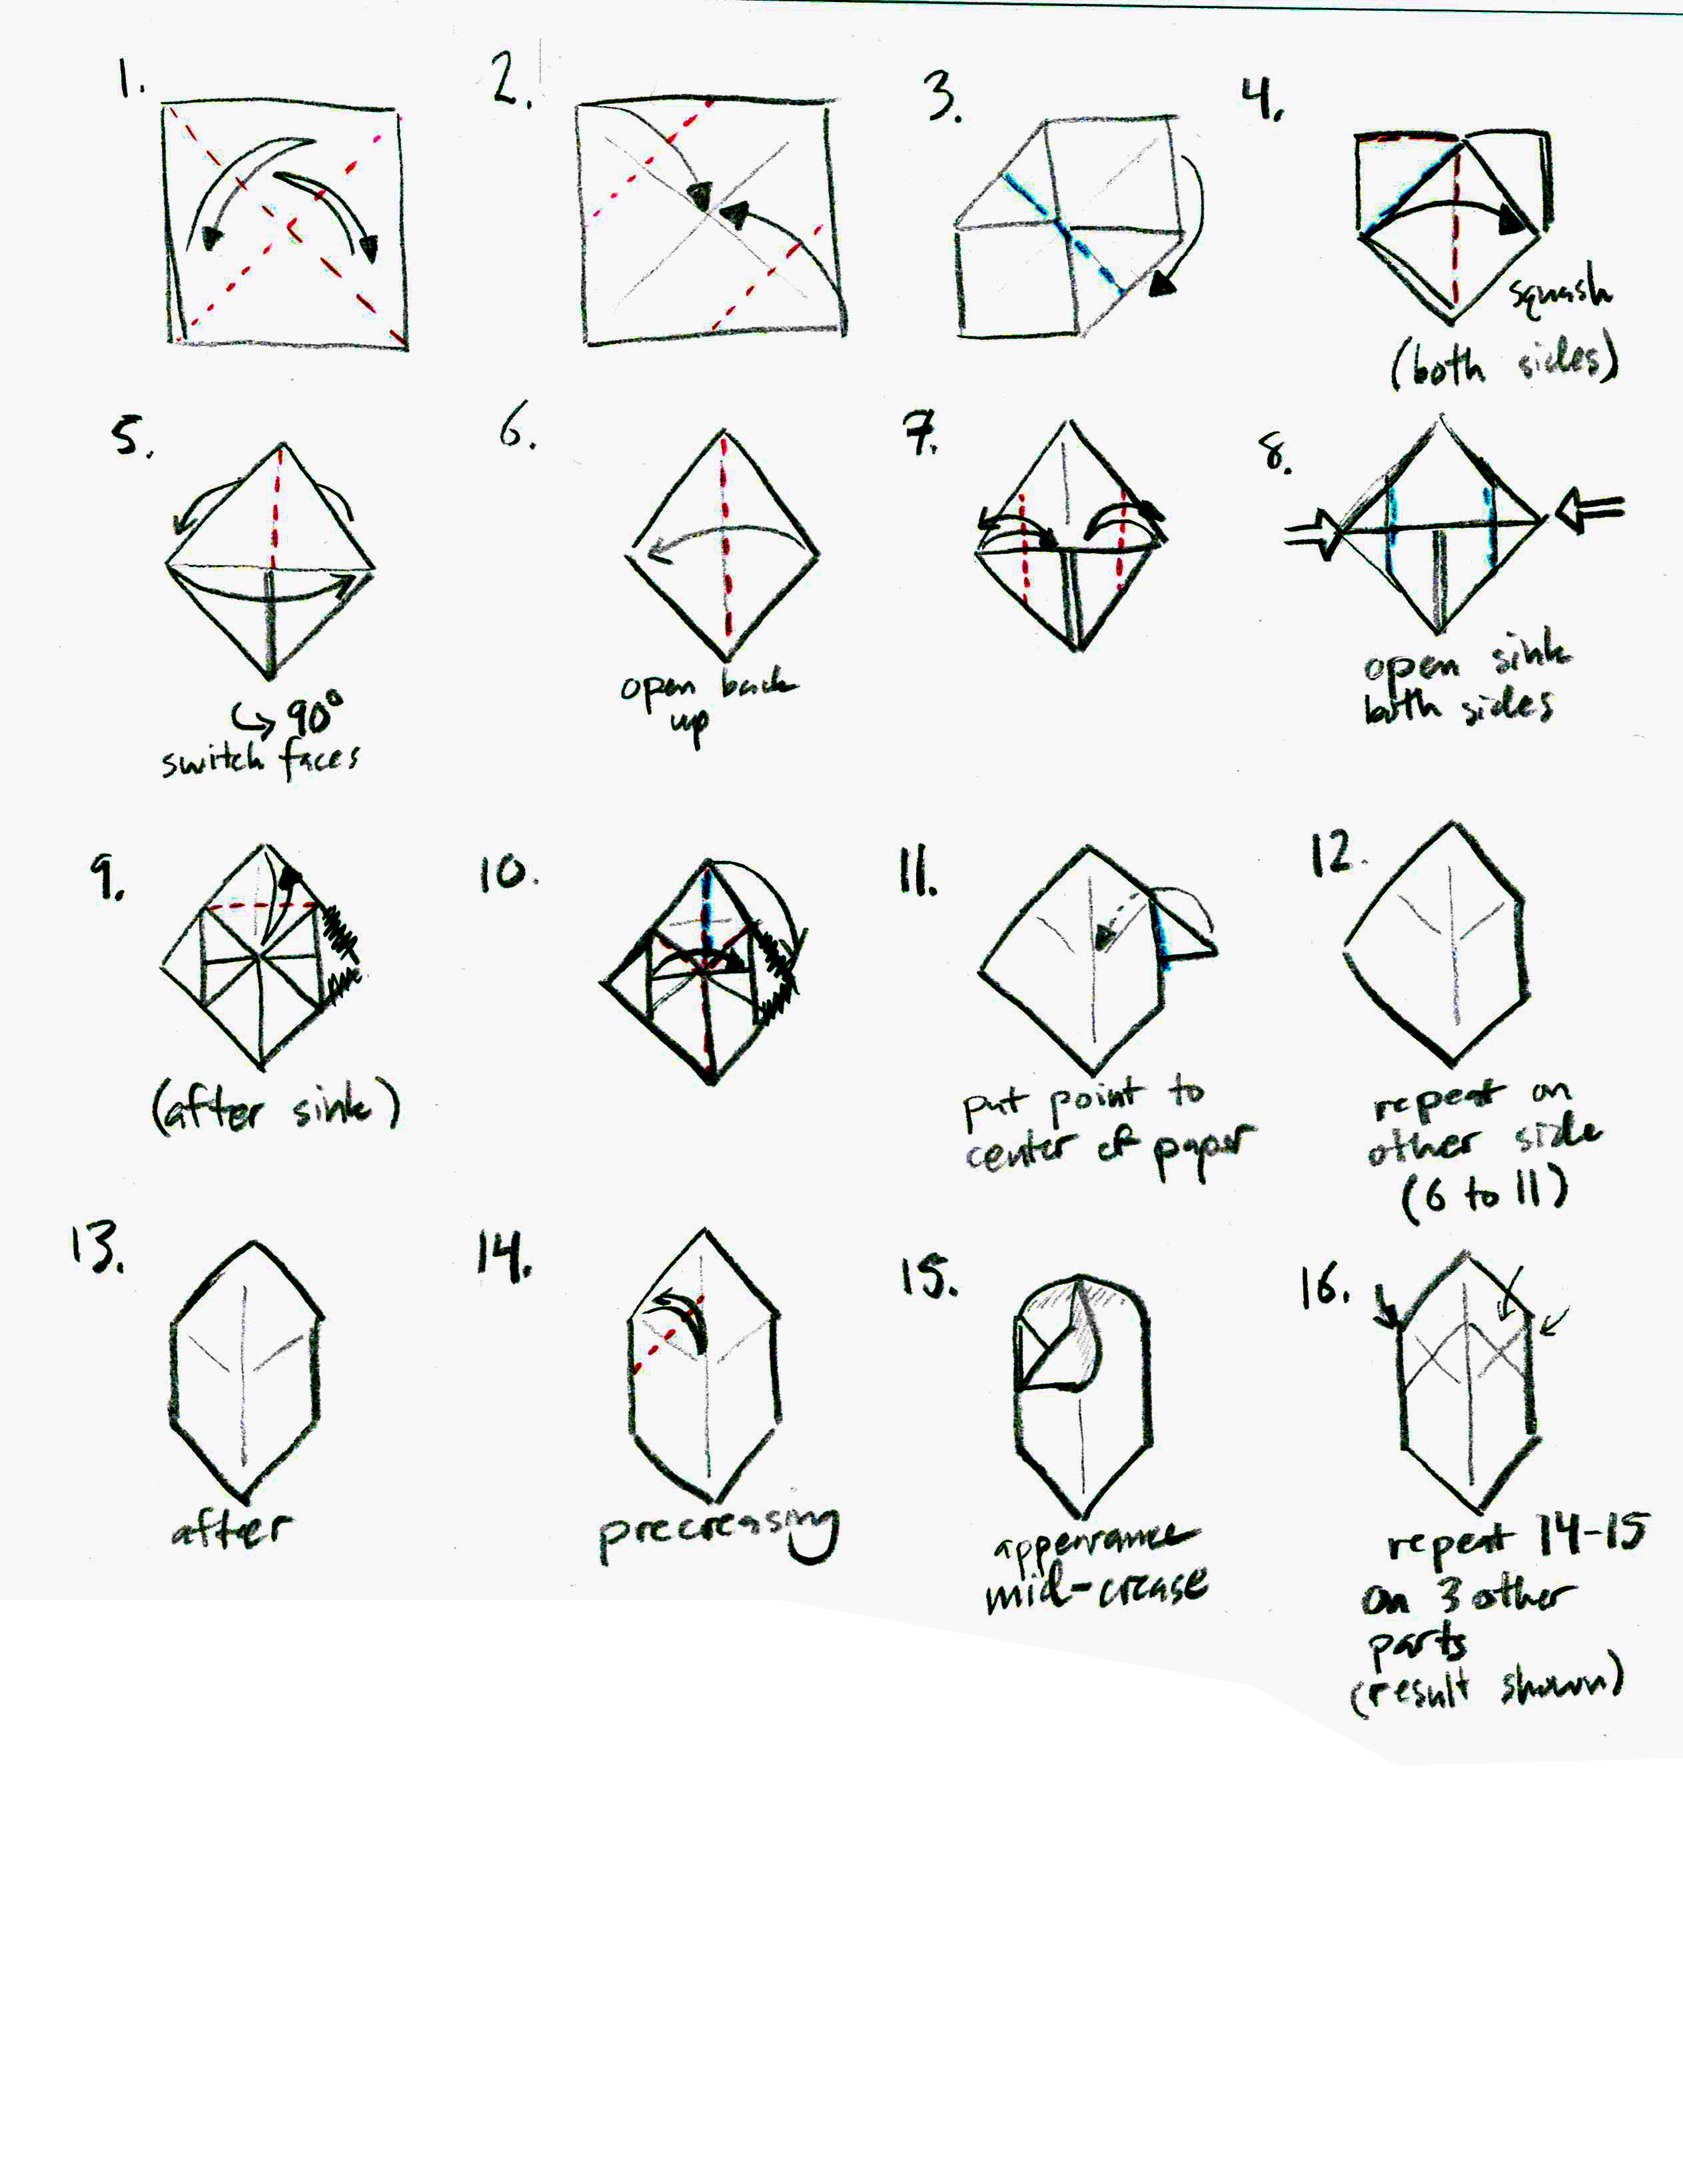 1.
2.
3.
4.
squash
(both sides)
5.
90°
switch faces
6.
open back
up
7.
8.
open sink
both sides
9.
(after sink)
10.
11.
put point to
center of paper
12.
repeat on
other side
(6 to 11)
13.
after
14.
precreasing
15.
appearance
mid-crease
16.
repeat 14-15
on 3 other
parts
(result shown)